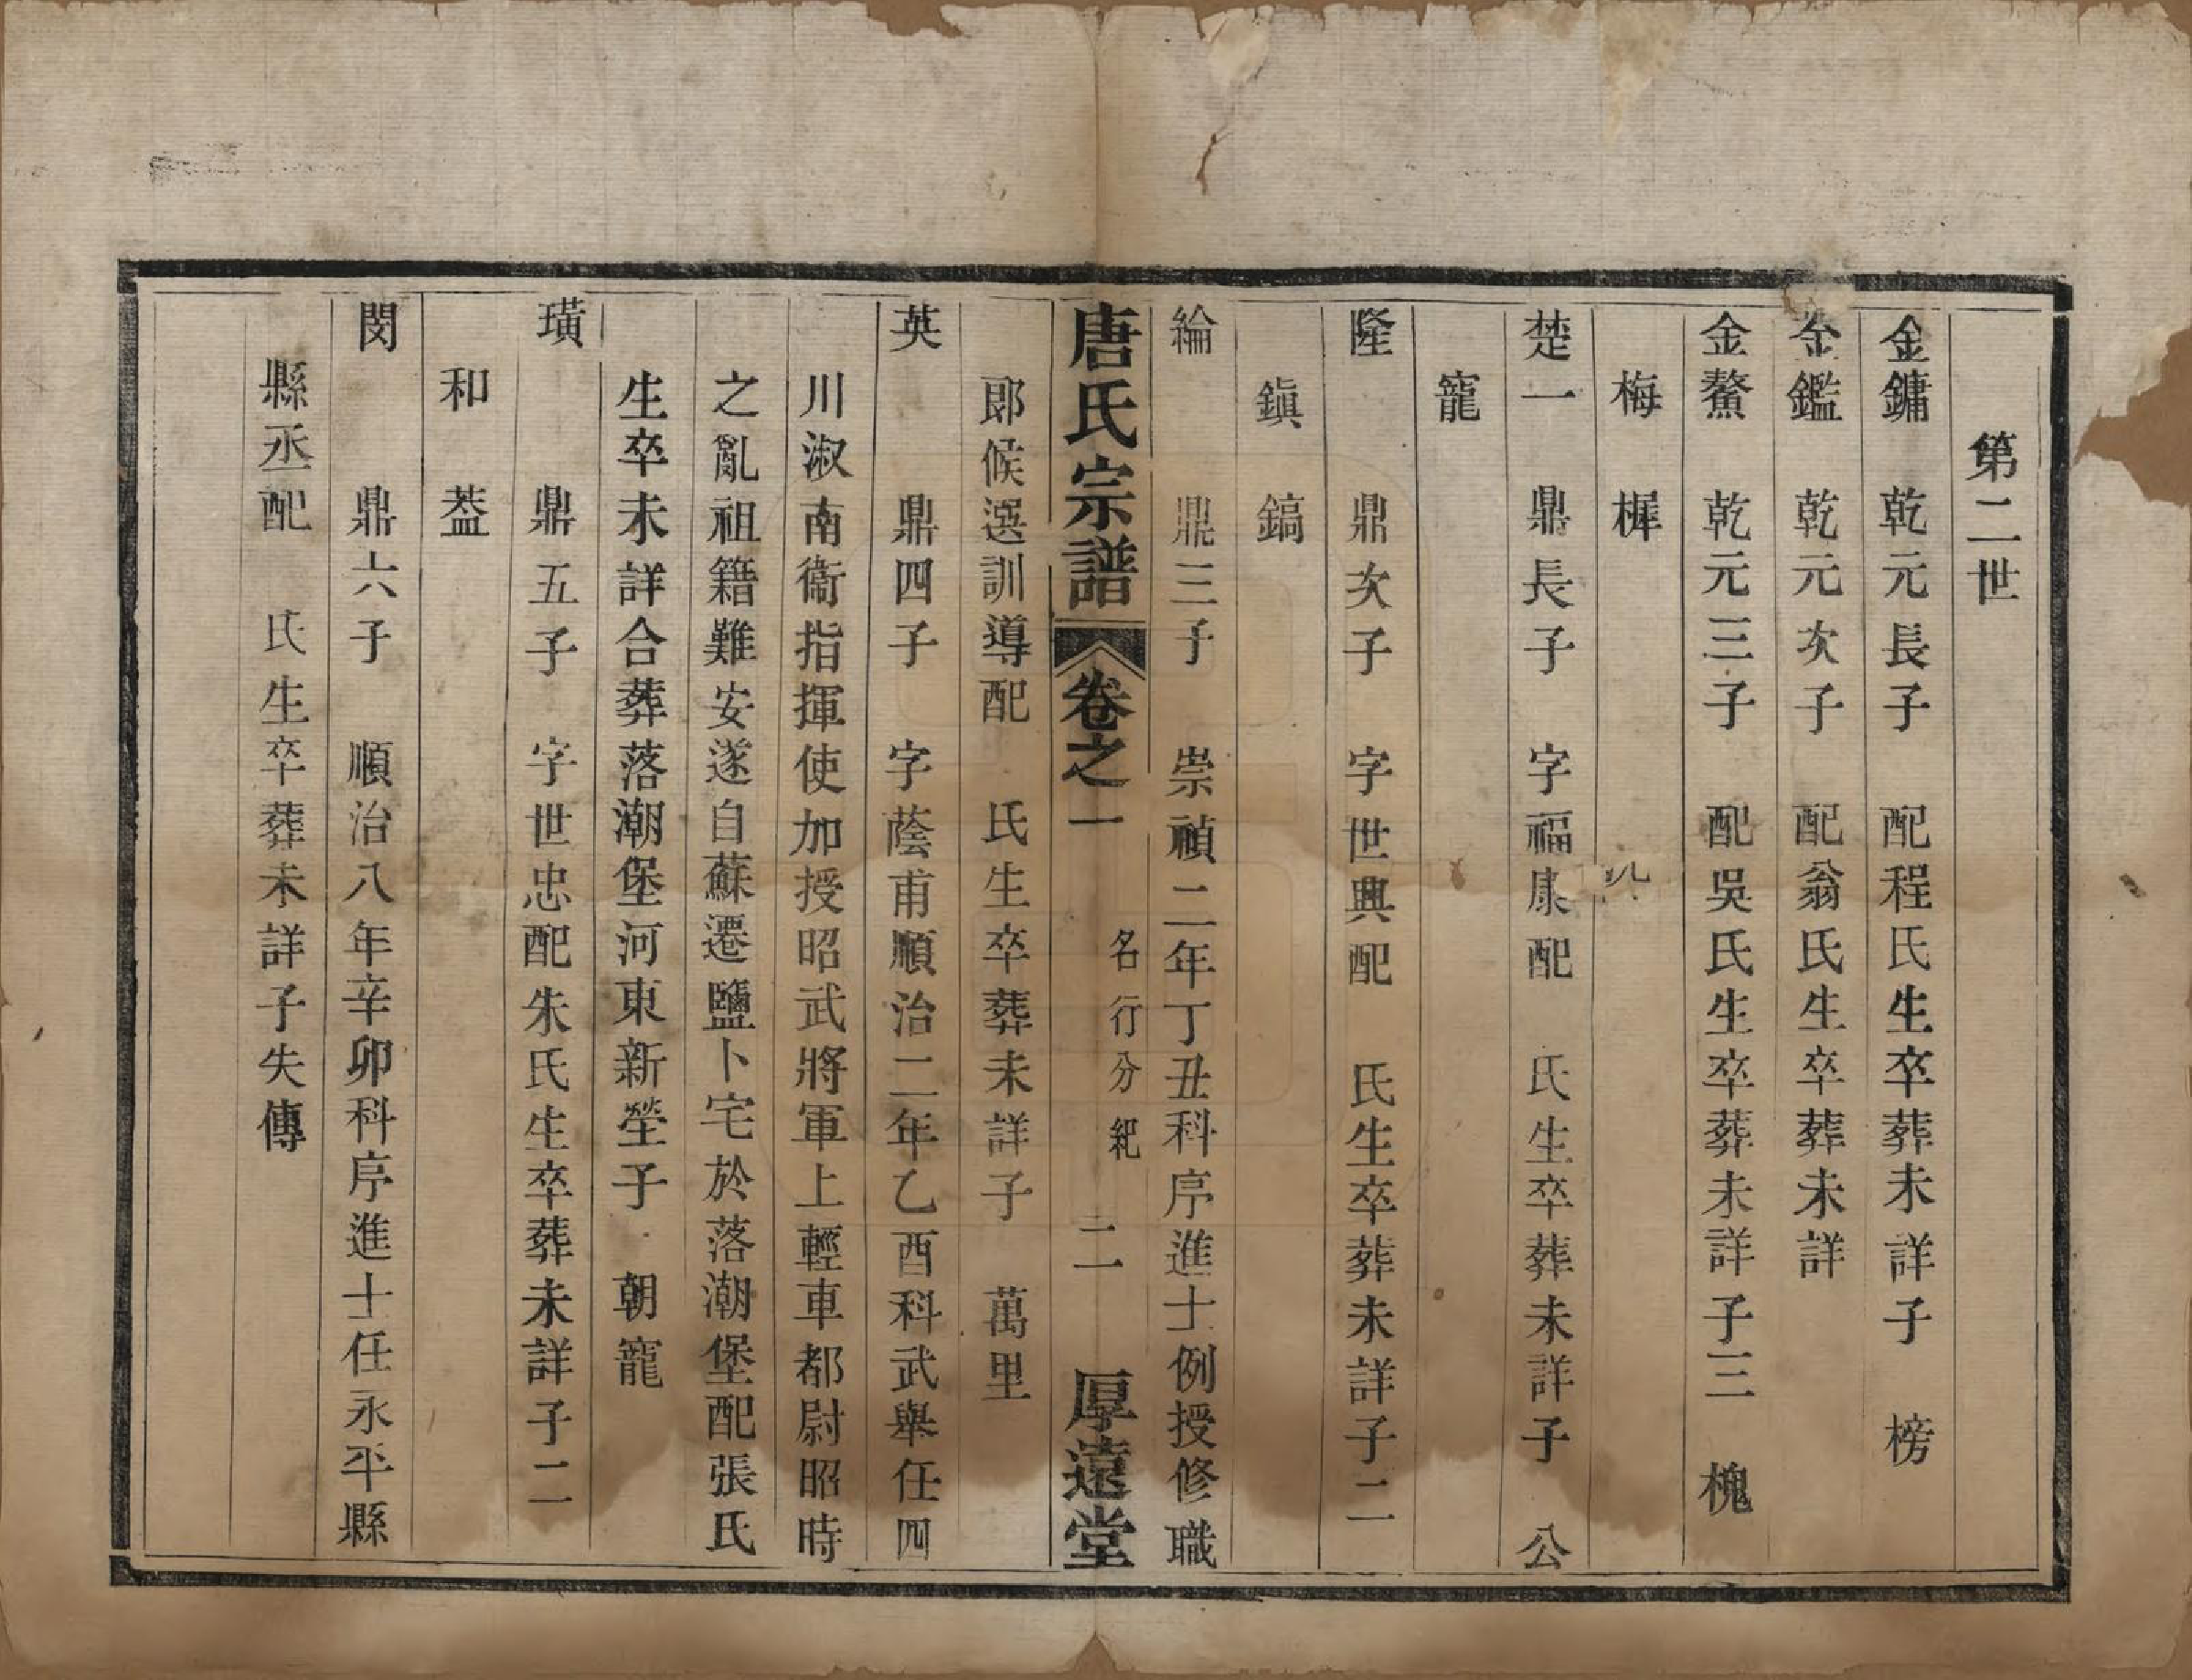 第二世
金鏞　乾元長子　配程氏生卒葬未詳子　榜
金鑑　乾元次子　配翁氏生卒葬未詳
金鰲　乾元三子　配吳氏生卒葬未詳子三　槐
梅　樨
楚一　鼎長子　字福康配　氏生卒葬未詳子　公
寵
隆　鼎次子　字世興配　氏生卒葬未詳子二
鎭　鎬
綸　鼎三子　崇禎二年丁丑科序進士例授修職
唐氏宗譜　卷之一　名行分紀　二　厚遠堂
郎候選訓導配　氏生卒葬未詳子　萬里
英　鼎四子　字蔭甫順治二年乙酉科武舉任四
川淑南衞指揮使加授昭武將軍上輕車都尉昭時
之亂祖籍難安遂自蘇遷鹽卜宅於落潮堡配張氏
生卒未詳合葬落潮堡河東新塋子　朝寵
璜　鼎五子　字世忠配朱氏生卒葬未詳子二
和　葢
閔　鼎六子　順治八年辛卯科序進士任永平縣
縣丞配　氏生卒葬未詳子失傳